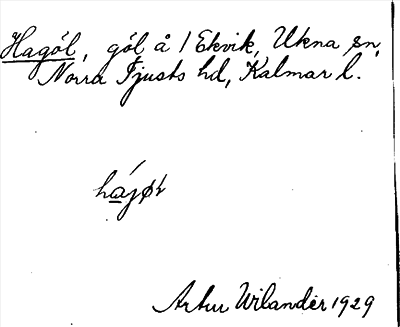 Hagöl, göl å 1 Ekvik, Ukna sn,
Norra Tjusts hd, Kalmar l.
Artur Wilander 1929